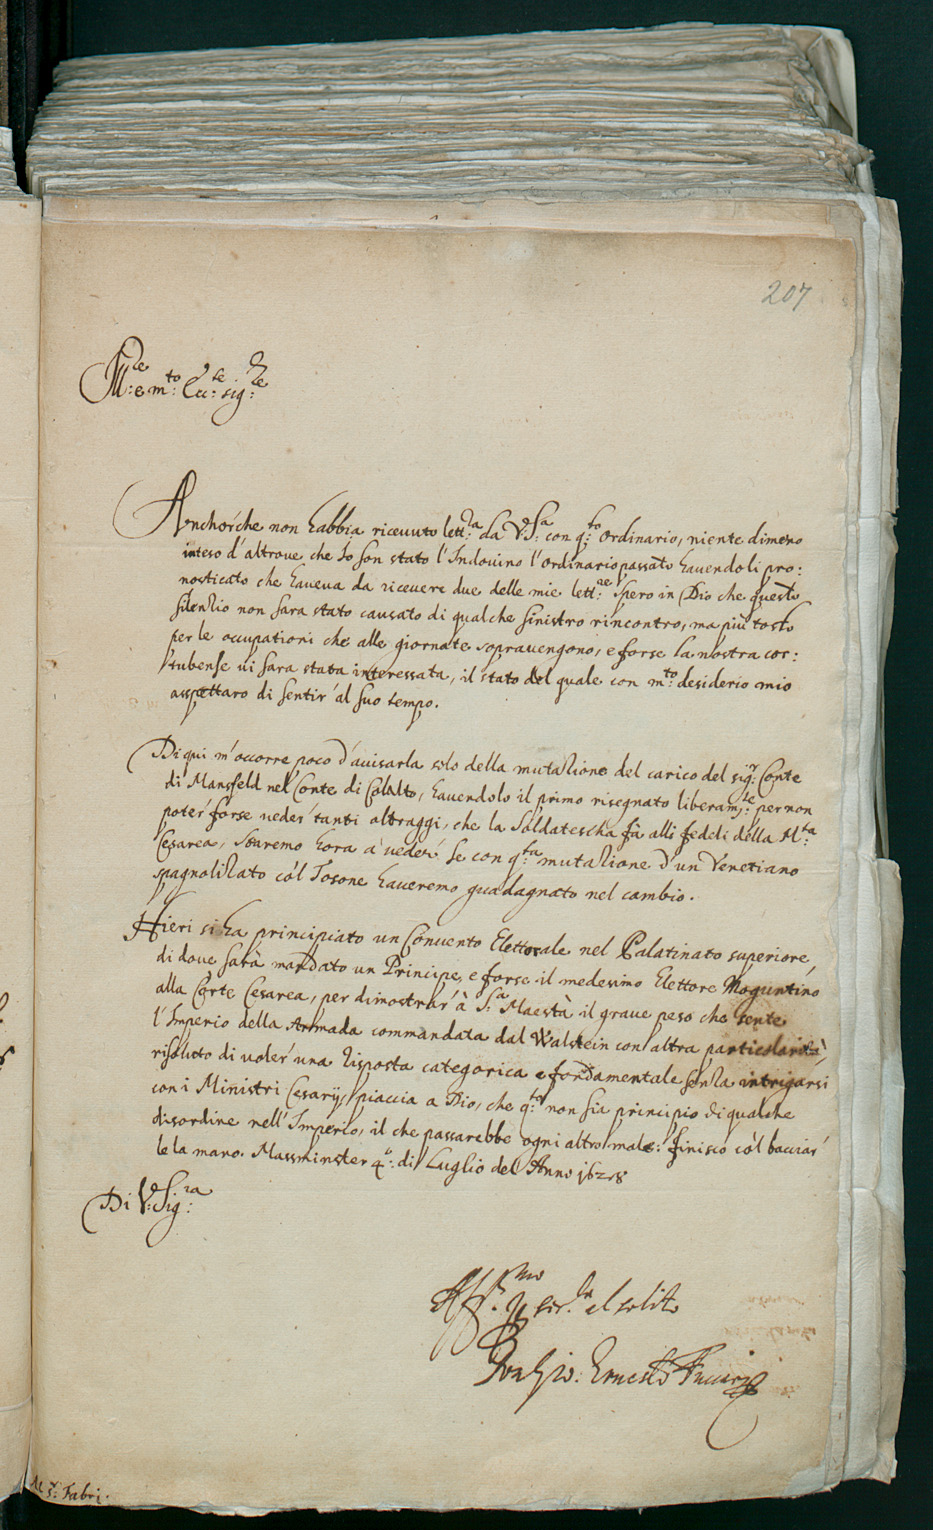 207
Ill:re e m:to Ecc:te sig:re
Anchorche non habbia ricevuto lett:ra da V.S:a con q:to ordinario, niente dimeno
inteso d'altrove che Io son stato l'Indovino l'ordinario passato havendoli pro:
nosticato che haveva da ricevere due delle mie lett:re Spero in Dio che questo
silentio non sara stato causato di qualche sinistro rincontro, ma più tosto
per le occupationi che alle giornate sopravengono, e forse la nostra cor:
tubense vi sara stata interessata, il stato del quale con m:to desiderio mio
aspettaro di sentir' al suo tempo.
Di qui m'occorre poco d'avisarla solo della mutatione del carico del sig:r Conte
di Mansfeld nel Conte di Colalto, havendolo il primo risegnato liberam:te per non
poter' forse veder' tanti oltraggi, che la Soldatescha fà alli fedeli della M:ta
Cesarea, Staremo hora a' veder' se con q:ta mutatione d'un Venetiano
spagnolizato co'l Tosone haveremo guadagnato nel cambio.
Hieri si ha principiato un Convento Elettorale nel Palatinato superiore,
di dove sarà mandato un Principe, e forse il medesimo Elettore Moguntino
alla Corte Cesarea, per dimostrar' à S:a Maestà il grave peso che sente
l'Imperio della Armada commandata dal Walstein con altra particolarità,
risoluto di voler' una risposta categorica e fondamentale senza intrigarsi
con i Ministri Cesarij, piaccia a Dio, che q:to non sia principio di qualche
disordine nell'Imperio, il che passarebbe ogni altro male: finisco co'l bacciar'
le la mano. Massminster 4:o di Luglio del Anno 1628
Di V: Sig:ra
Aff:mo ser:re el solito
Gio: Ernesto
Al S:r Fabri.